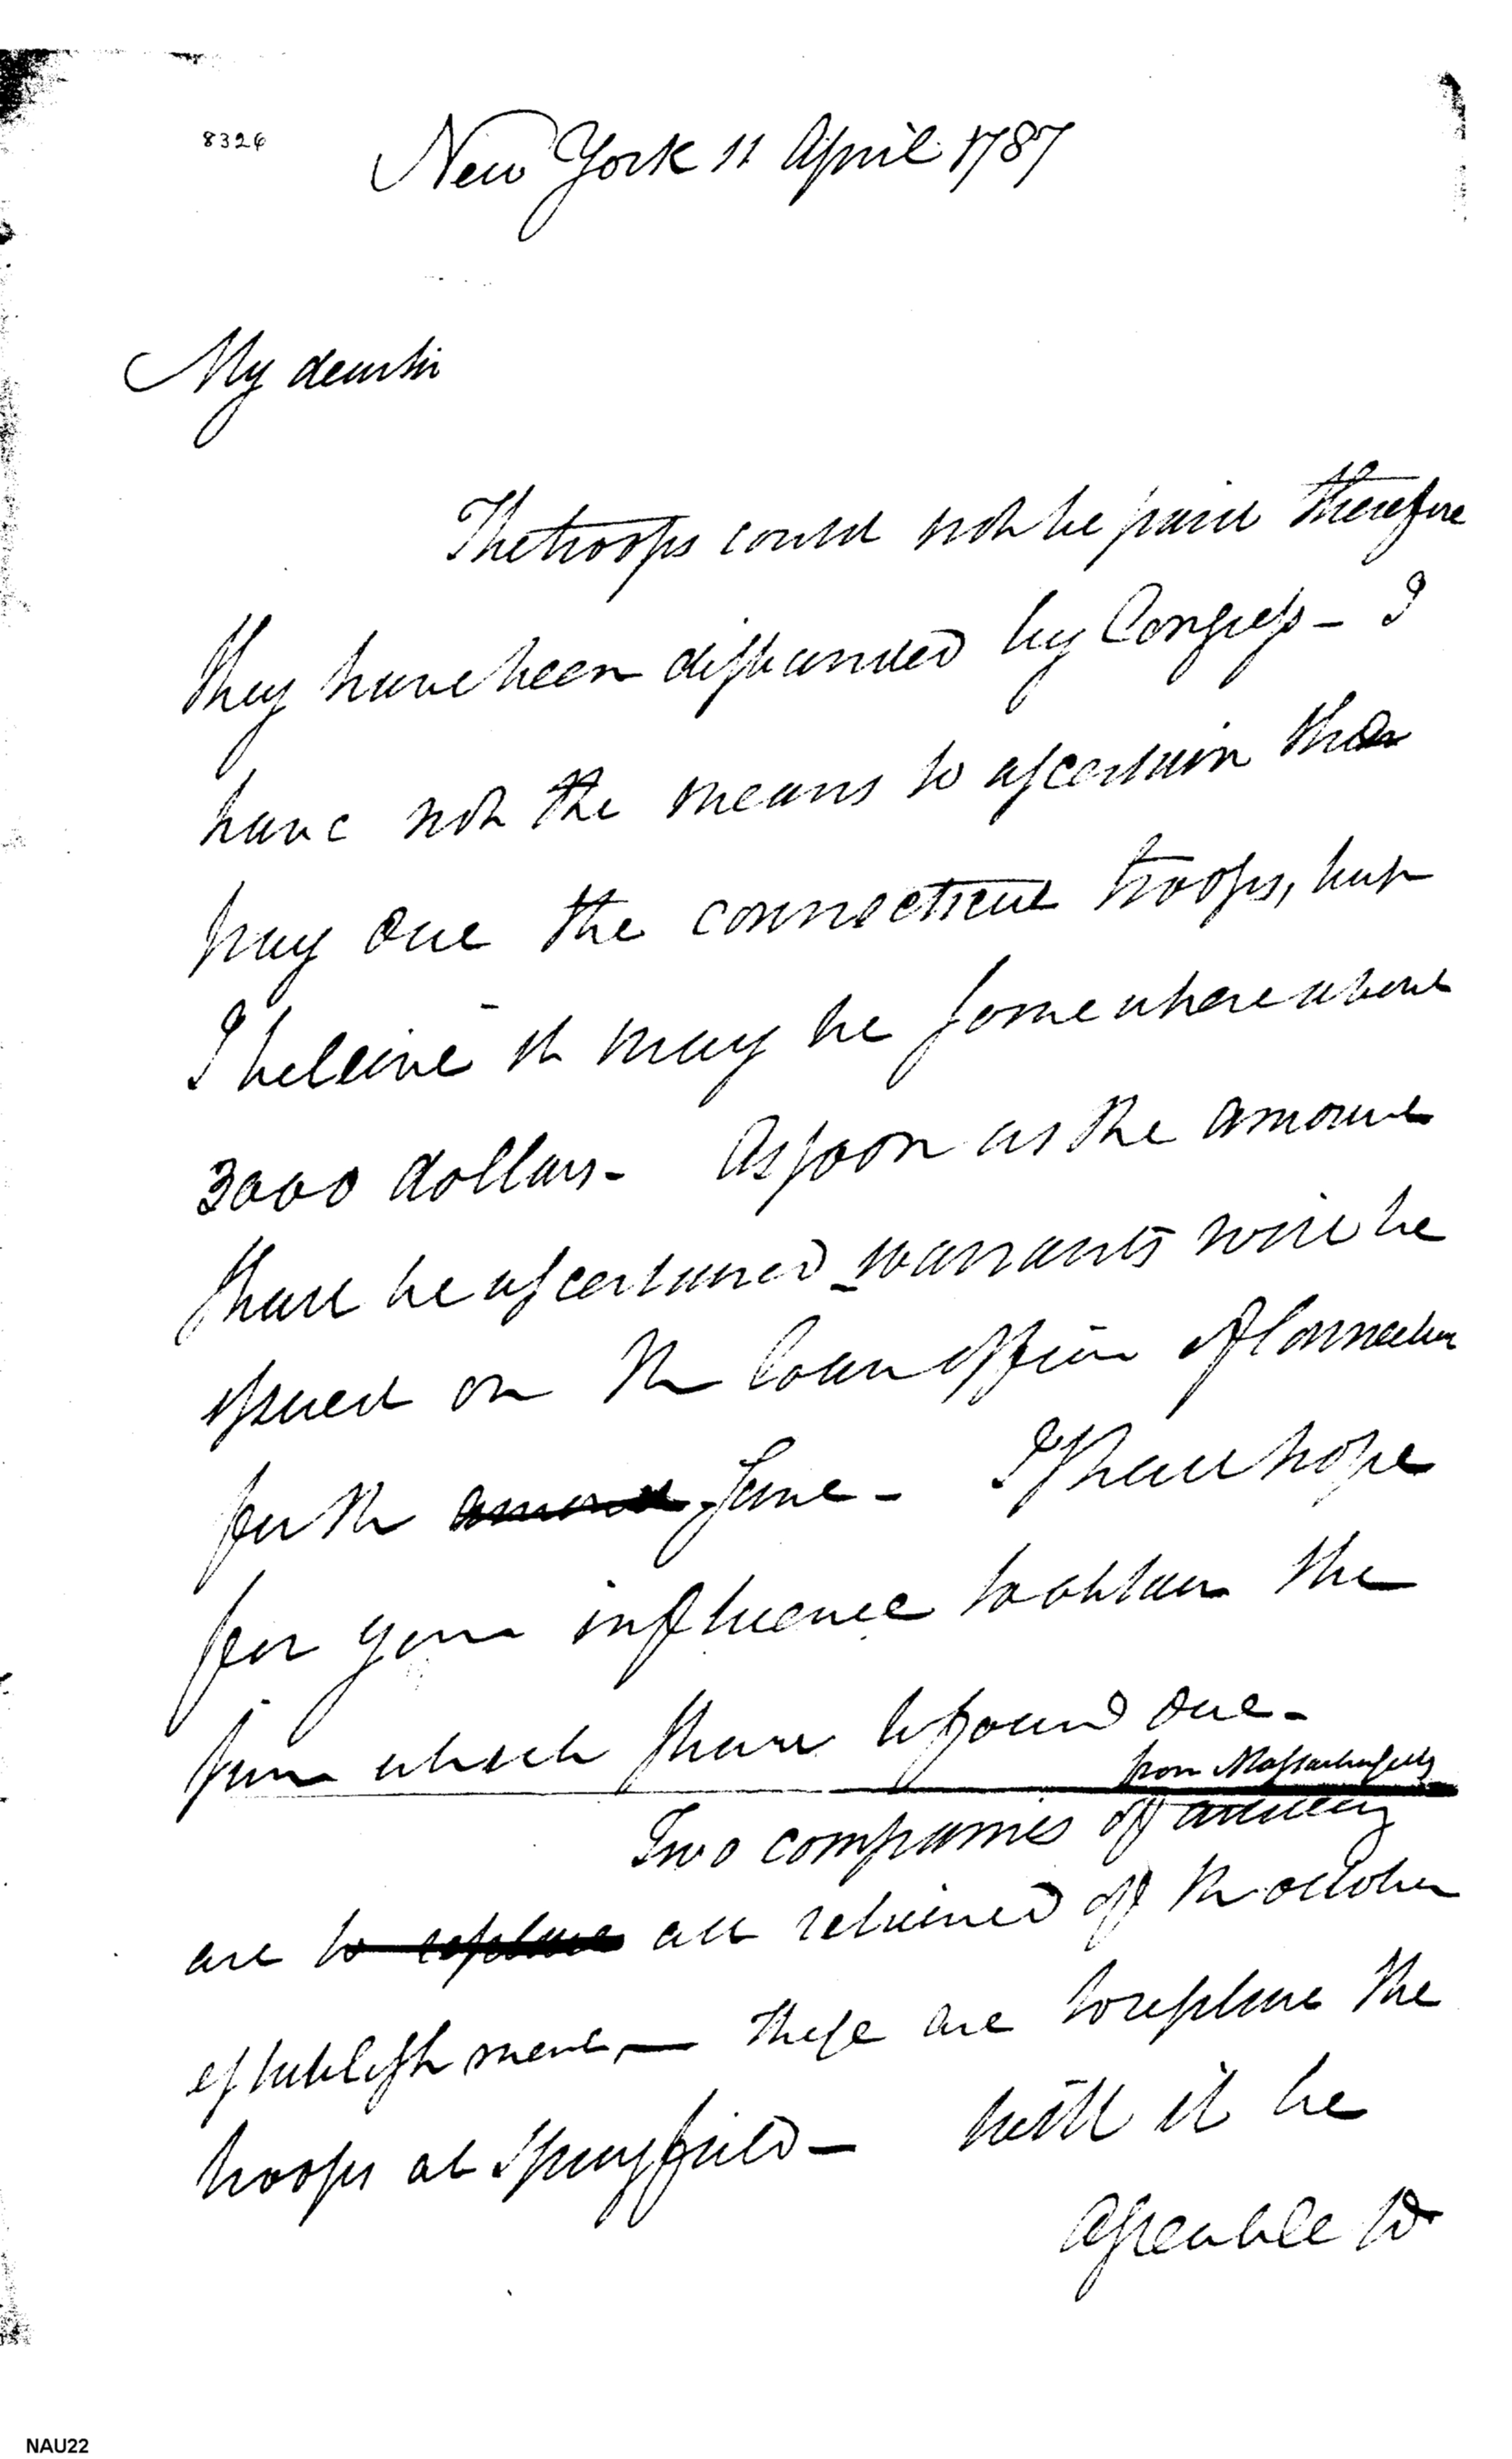 8326
New York 11 April 1787
My dear sir
The troops could not be paid therefore
they have been disbanded by Congress - I
have not the means to ascertain the
pay due the connecticut troops, but
I beleive it may be somewhere about
3000 dollars - As soon as the amount
shall be ascertained - warrants will be
issued on the loan officer of Connecticut
for the amount same - I shall hope
for your influence to obtain the
sum which shall be found due -
from Massachusetts
Two companies of artillery
are to replace all retained of the october
establishment, — these are to replace the
troops at Springfield — will it be
agreeable to
NAU22